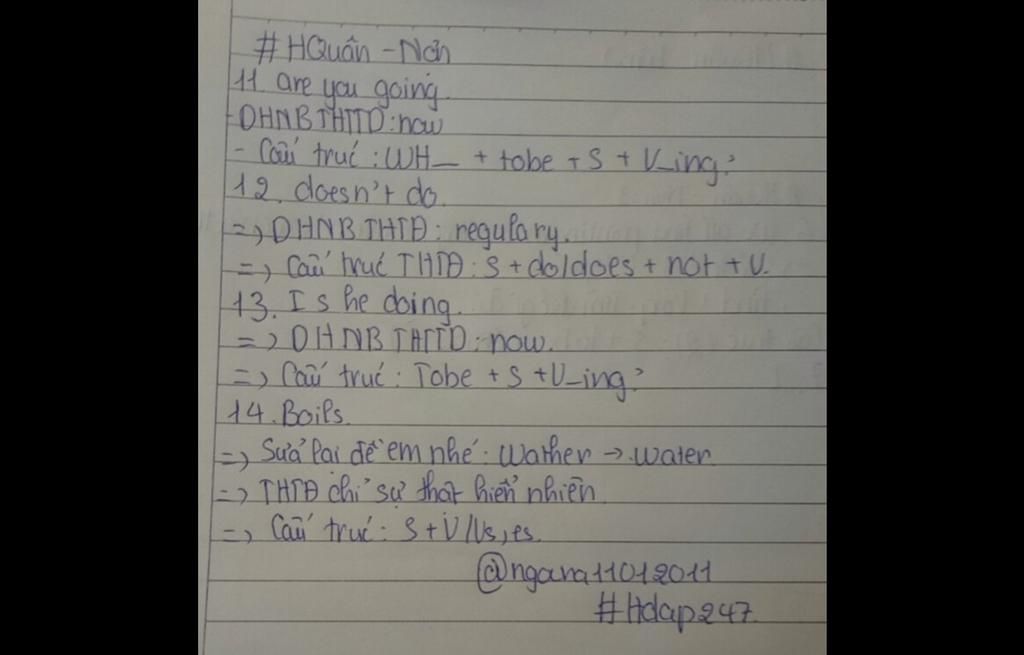 #HQuân - Nch
11. are you going.
- DHNB THTTD: now
- Cấu trúc: WH_ + tobe + S + V_ing?
12. doesn't do.
=> DHNB THTĐ: regulary.
=> Cấu trúc THTĐ: S + do/does + not + V.
13. Is he doing.
=> DHNB THTTD: now.
=> Cấu trúc: Tobe + S + V_ing?
14. Boils.
=> Sửa lại đề em nhé: Wather → water.
=> THTĐ chỉ sự thật hiển nhiên.
=> Cấu trúc: S + V/Vs,es.
@ngana11012011
#Hdap247.